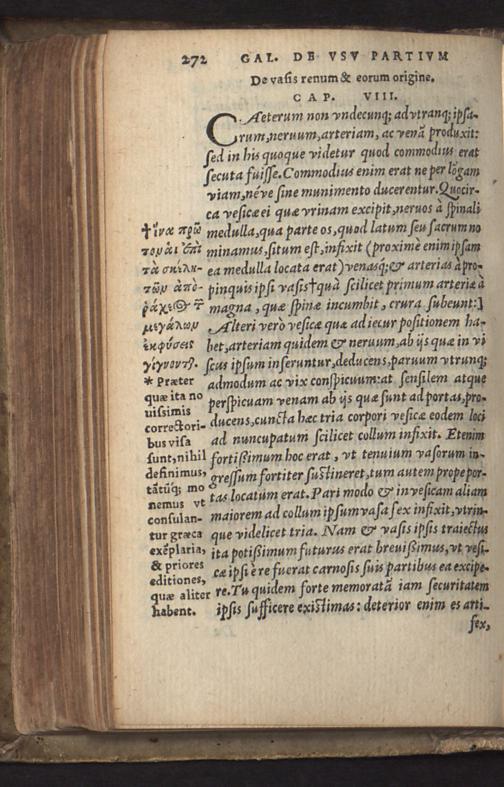 272 GAL. DE VSV PARTIVM
De vasis renum & eorum origine.
CAP. VIII.
CÆterum non vndecunq; ad vtranq; ipsa-
rum, neruum, arteriam, ac venā produxit:
sed in his quoque videtur quod commodius erat
secuta fuisse. Commodius enim erat ne per lōgam
viam, néve sine munimento ducerentur. Quocir-
ca vesicæ ei quæ vrinam excipit, neruos à spinali
medulla, qua parte os, quod latum seu sacrum no
minamus, situm est, infixit (proximè enim ipsam
ea medulla locata erat) venasq; & arterias à pro-
pinquis ipsi vasis † quà scilicet primum arteriæ à
magna, quæ spinæ incumbit, crura subeunt:]
Alteri verò vesicæ quæ ad iecur positionem ha-
bet, arteriam quidem & neruum, ab ijs quæ in vi
scus ipsum inseruntur, deducens, paruum vtrunq;
admodum ac vix conspicuum: at sensilem atque
perspicuam venam ab ijs quæ sunt ad portas, pro-
ducens, cuncta hæc tria corpori vesicæ eodem loci
ad nuncupatum scilicet collum infixit. Etenim
fortissimum hoc erat, vt tenuium vasorum in-
gressum fortiter sustineret, tum autem prope por-
tas locatum erat. Pari modo & in vesicam aliam
maiorem ad collum ipsum vasa sex infixit, vtrin-
que videlicet tria. Nam & vasis ipsis traiectus
ita potissimum futurus erat breuissimus, vt vesi-
cæ ipsi è re fuerat carnosis suis partibus ea excipe-
re. Tu quidem forte memoratā iam securitatem
ipsis sufficere existimas: deterior enim es arti-
fex,
† ἵνα πρῶ
τον αἱ ἐπὶ
τὰ σκέλη
τῶν ἀπὸ
ῥάχεως τ
μεγάλων
ἐκφύσεις
γίγνοντ.
* Præter
quæ ita no
uissimis
correctori-
bus visa
sunt, nihil
definimus,
tātūq; mo
nemus vt
consulan-
tur græca
exēplaria,
& priores
editiones,
quæ aliter
habent.